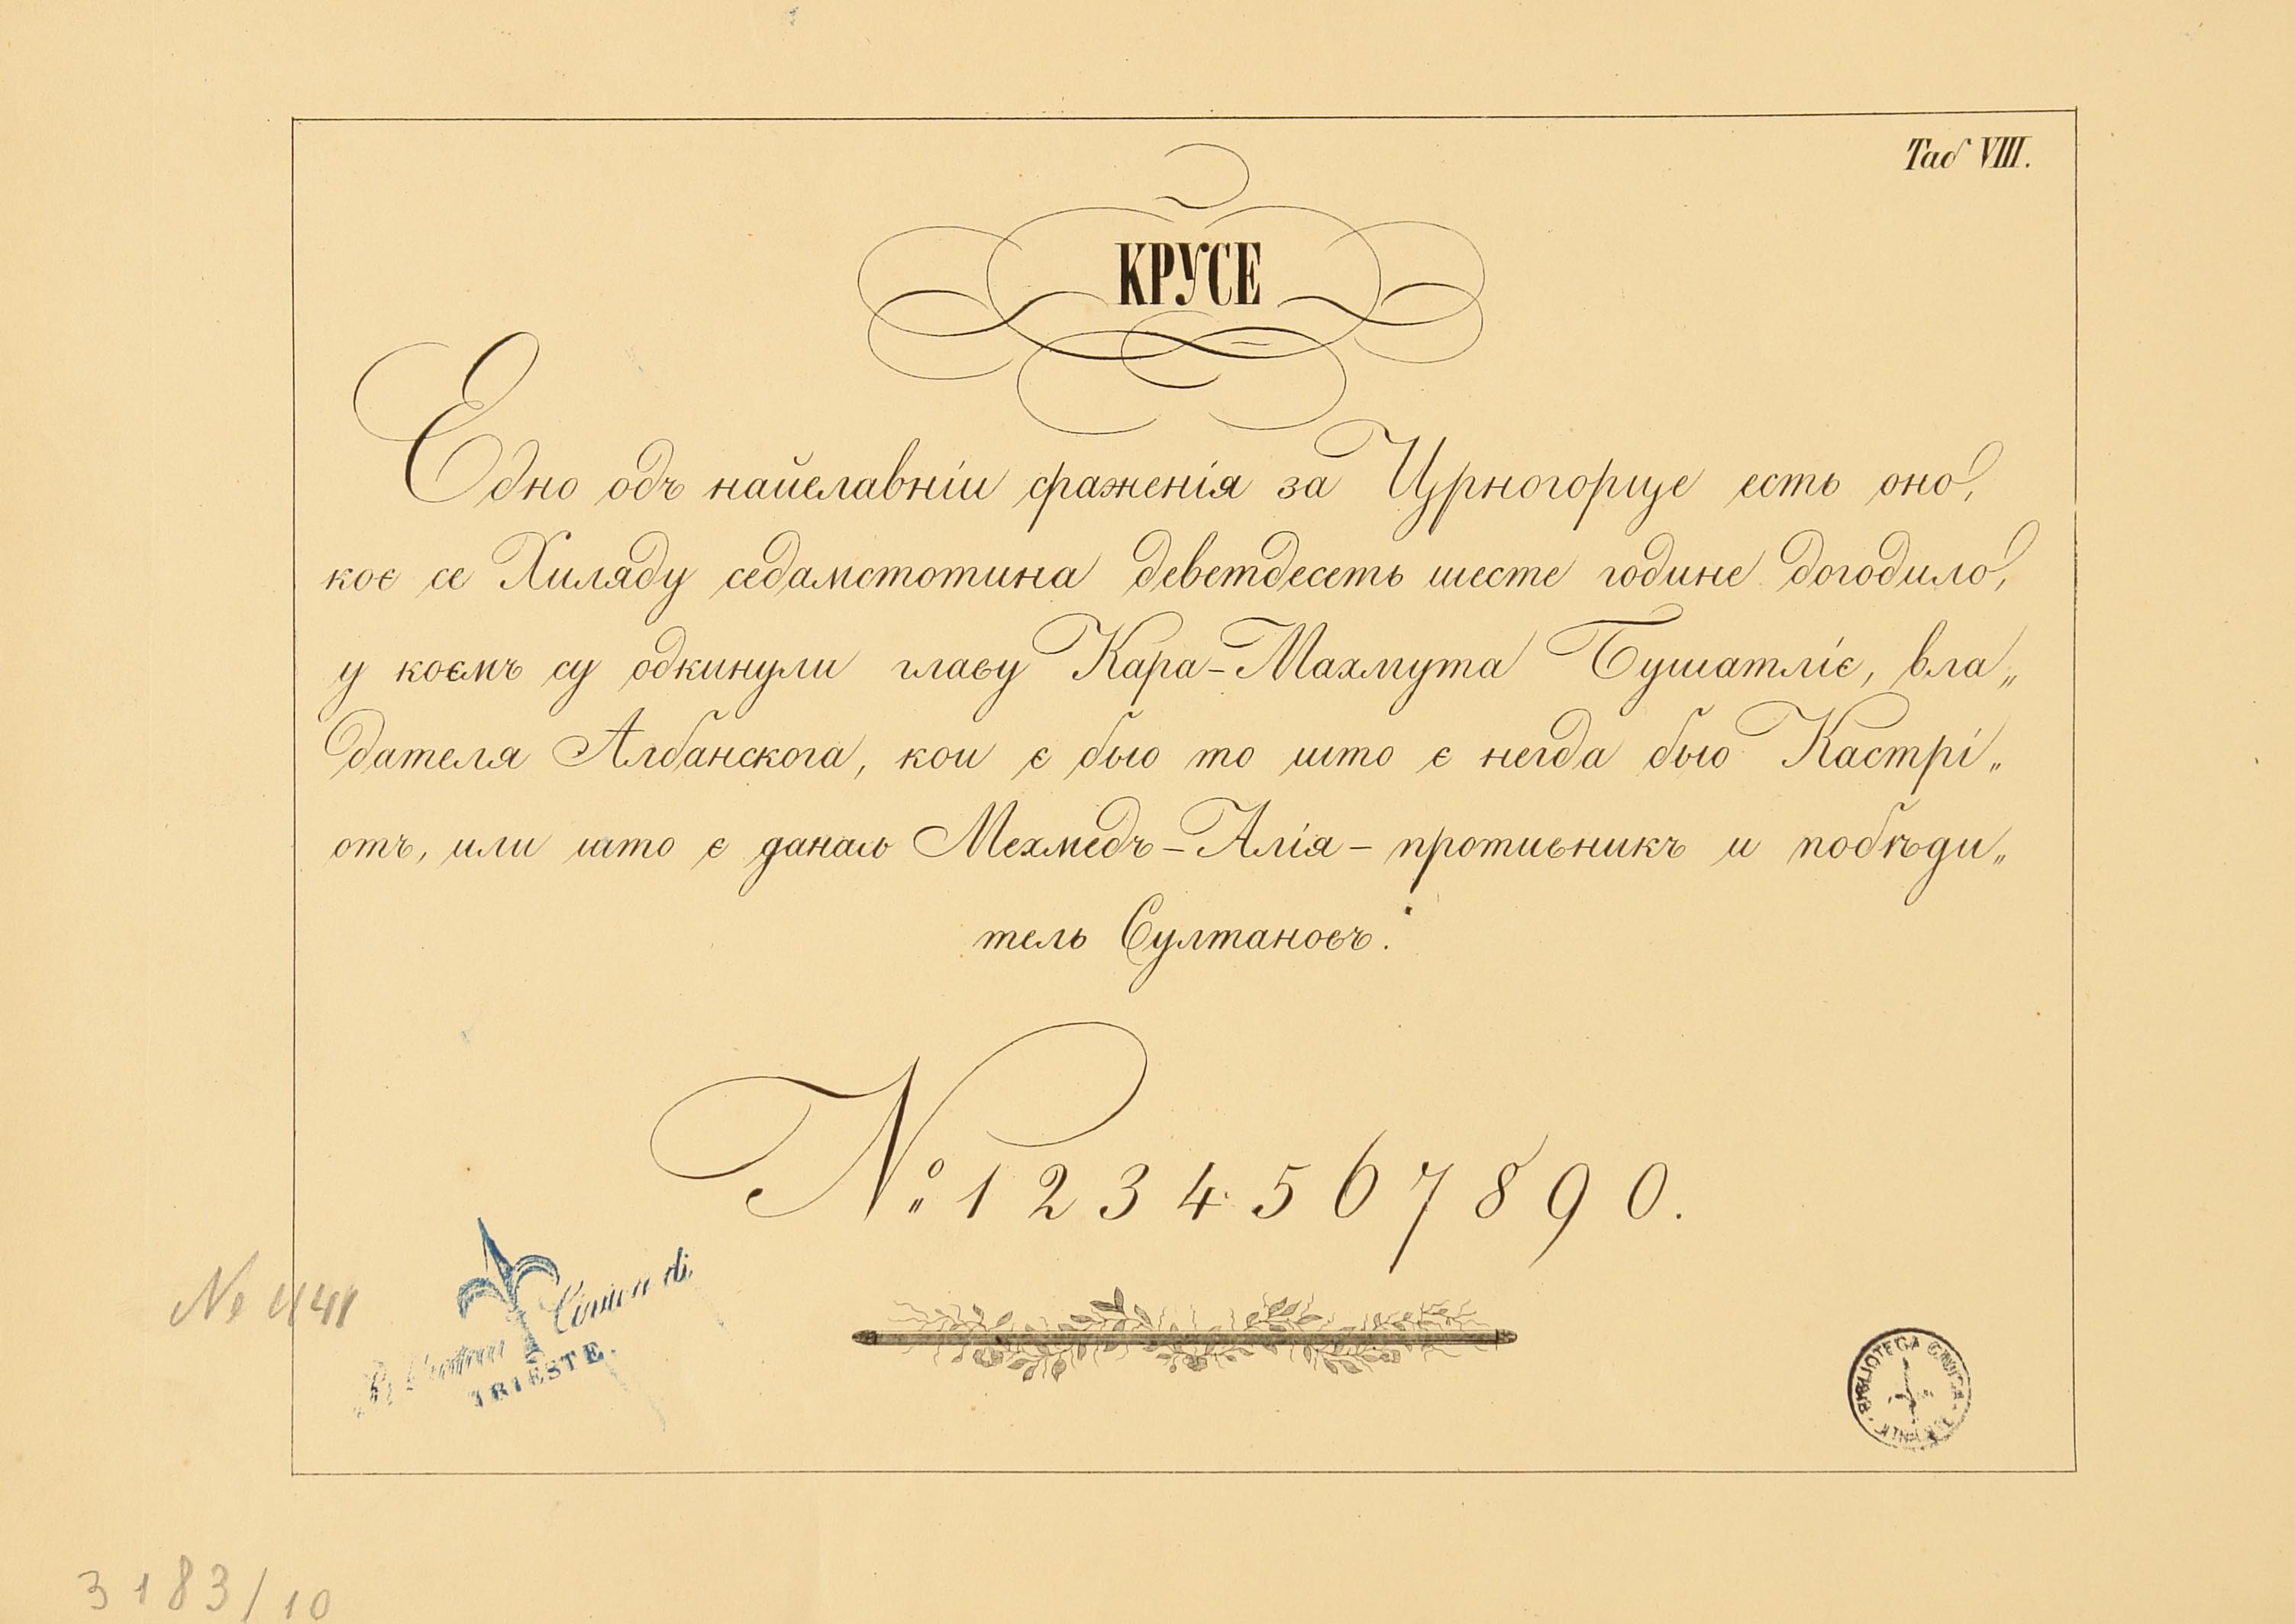 Таб VIII.
КРУСЕ
Едно одъ найславнiи сраженiя за Црногорце есть оно,
коє се Хиляду седамстотина деветдесеть шесте године догодило,
у коємъ су одкинули главу Кара-Махмута Бушатлiє, вла„
дателя Албанскога, кои є быо то што є негда быо Кастрi„
отъ, или што є данась Мехмедъ-Алiя - противникъ и побѣди„
тель Султановъ.
№ 1 2 3 4 5 6 7 8 9 0.
Civica di
TRIESTE.
BIBLIOTECA CIVICA
3183/10